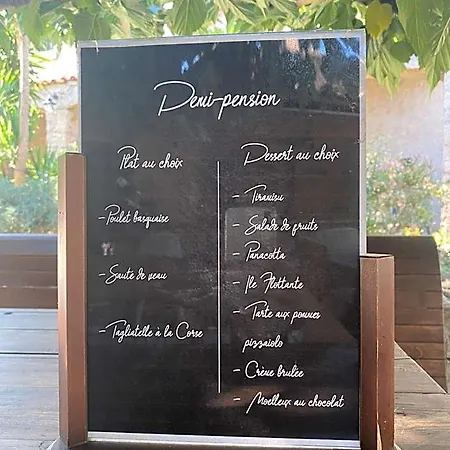 Demi-pension
Plat au choix
- Poulet basquaise
- Sauté de veau
- Tagliatelle à la Corse
Dessert au choix
- Tiramisu
- Salade de fruits
- Panacotta
- Ile Flottante
- Tarte aux pommes
pizzaiolo
- Crème brulée
- Moelleux au chocolat